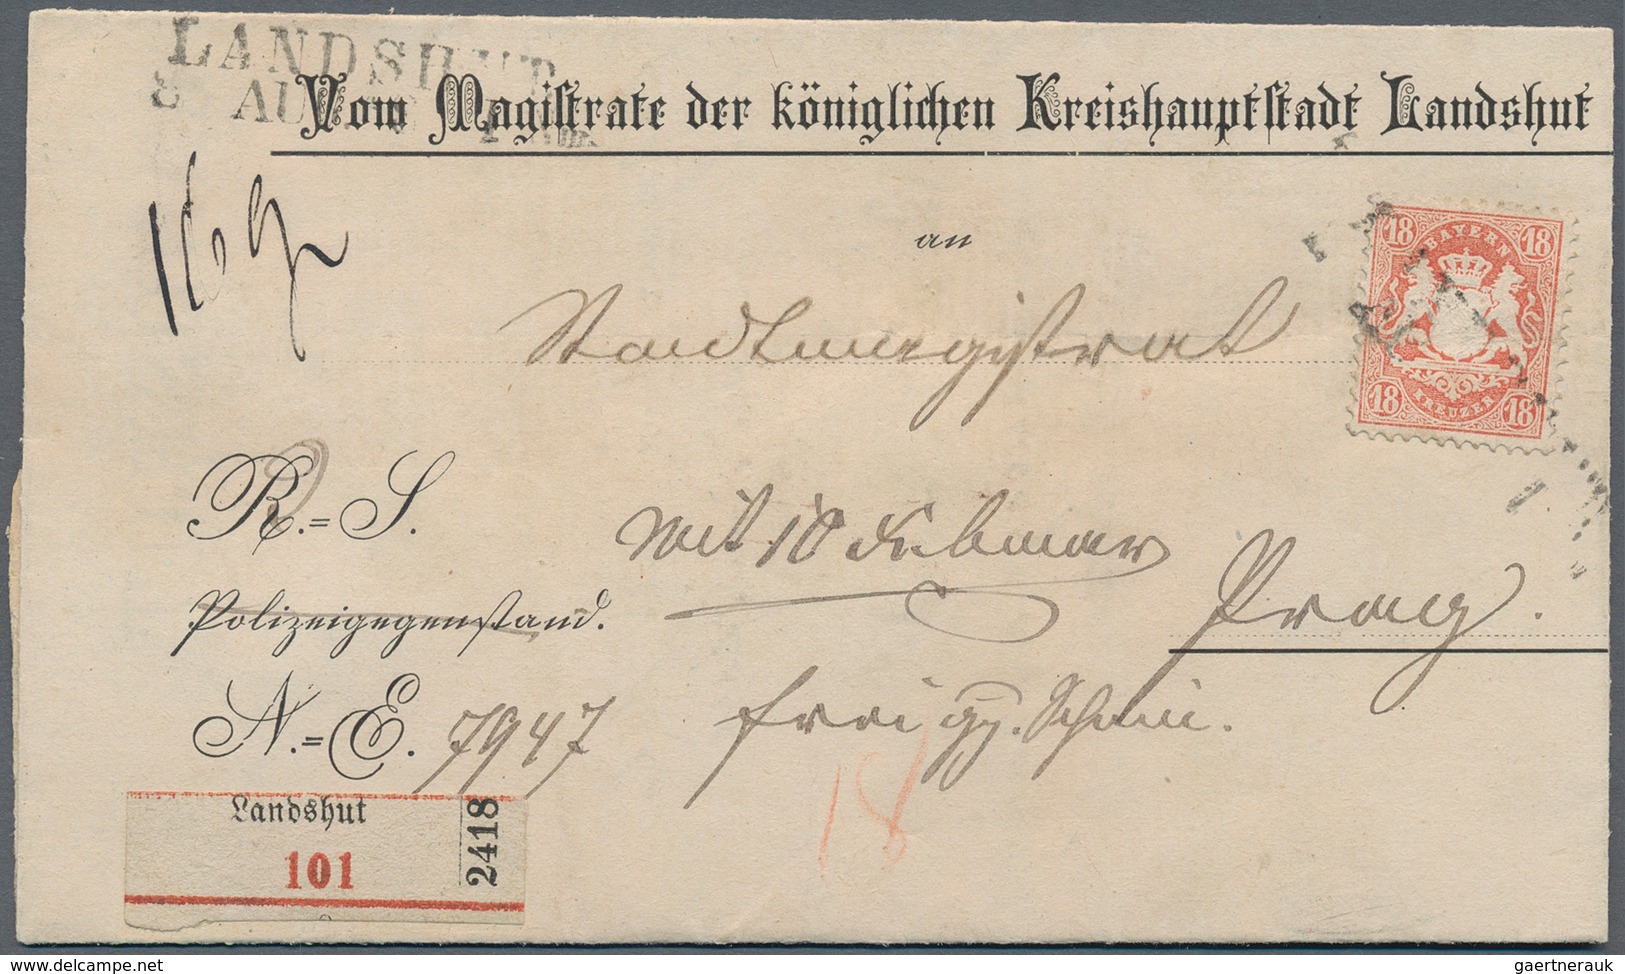 LANDSHUT
AU
Vom Magistrate der königlichen Kreishauptstadt Landshut
16 g
an
18 BAYERN 18
18 KREUZER 18
Stadtmagistrat
R.=S.
mit 10
Prag.
Polizeigegenstand.
N.=E. 7947
frei gg. Schein.
18
Landshut
101
2418
delcampe.net
gaertnerauk